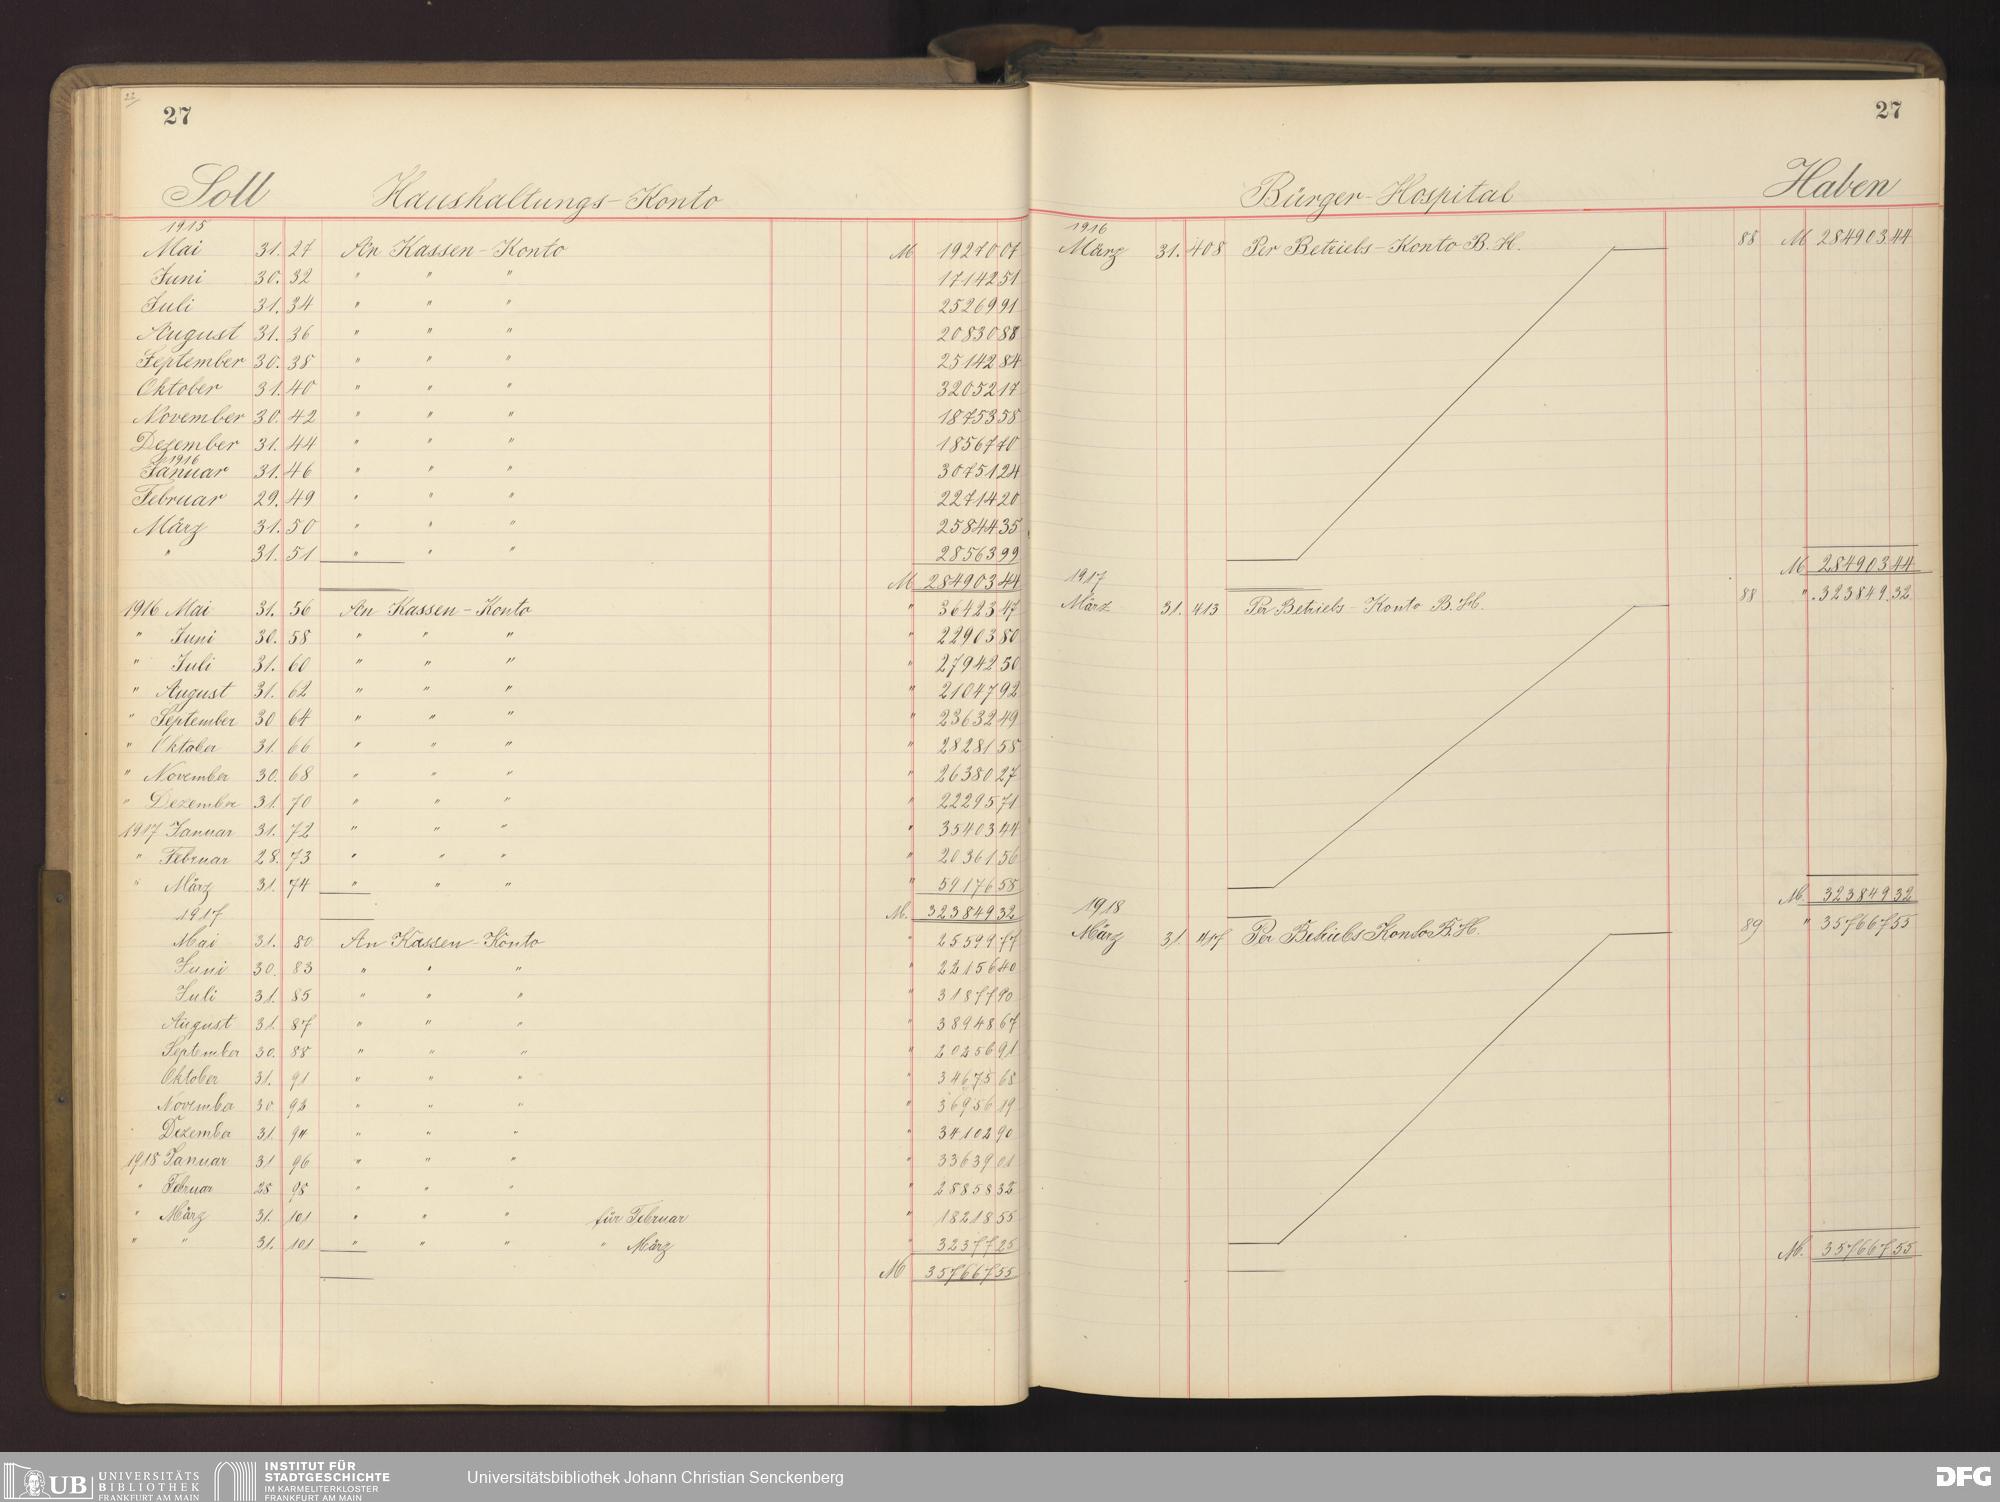 22
27
Soll Haushaltungs-Konto
1915
Mai 31. 27 An Kassen-Konto M 19270 07
Juni 30. 32 " " " 17142 51
Juli 31. 34 " " " 25269 91
August 31. 36 " " " 20830 88
September 30. 38 " " " 25142 84
Oktober 31. 40 " " " 32052 17
November 30. 42 " " " 18753 58
Dezember 31. 44 " " " 18567 70
1916
Januar 31. 46 " " " 30751 24
Februar 29. 49 " " " 22714 20
März 31. 50 " " " 25844 35
" 31. 51 " " " 28563 99
M 284903 44
1916 Mai 31. 56 An Kassen-Konto " 36423 47
" Juni 30. 58 " " " " 22903 80
" Juli 31. 60 " " " " 27942 50
" August 31. 62 " " " " 21047 92
" September 30 64 " " " " 23632 49
" Oktober 31. 66 " " " " 28281 58
" November 30. 68 " " " " 26380 27
" Dezember 31. 70 " " " " 22295 71
1917 Januar 31. 72 " " " " 35403 44
" Februar 28. 73 " " " " 20361 56
" März 31. 74 " " " " 59176 58
1917 M. 323849 32
Mai 31. 80 An Kassen-Konto " 25599 77
Juni 30. 83 " " " " 22156 40
Juli 31. 85 " " " " 31877 90
August 31. 87 " " " " 38948 67
September 30. 88 " " " " 20256 91
Oktober 31. 91 " " " " 34675 68
November 30. 93 " " " " 36956 19
Dezember 31. 94 " " " " 34102 90
1918 Januar 31 96 " " " " 33639 01
" Februar 28 98 " " " " 28858 32
" März 31. 101 " " " für Februar " 18218 55
" " 31. 101 " " " " März " 32377 25
M 357667 55
27
Bürger-Hospital Haben
1916
März 31. 408 Per Betriebs-Konto B.H. 88 M 284903 44
M 284903 44
1917
März 31. 413 Per Betriebs-Konto B.H. 88 " 323849 32
M. 323849 32
1918
März 31. 417 Per Betriebs Konto B.H. 89 " 357667 55
M. 357667 55
UB UNIVERSITÄTS
BIBLIOTHEK
FRANKFURT AM MAIN
INSTITUT FÜR
STADTGESCHICHTE
IM KARMELITERKLOSTER
FRANKFURT AM MAIN
Universitätsbibliothek Johann Christian Senckenberg
DFG